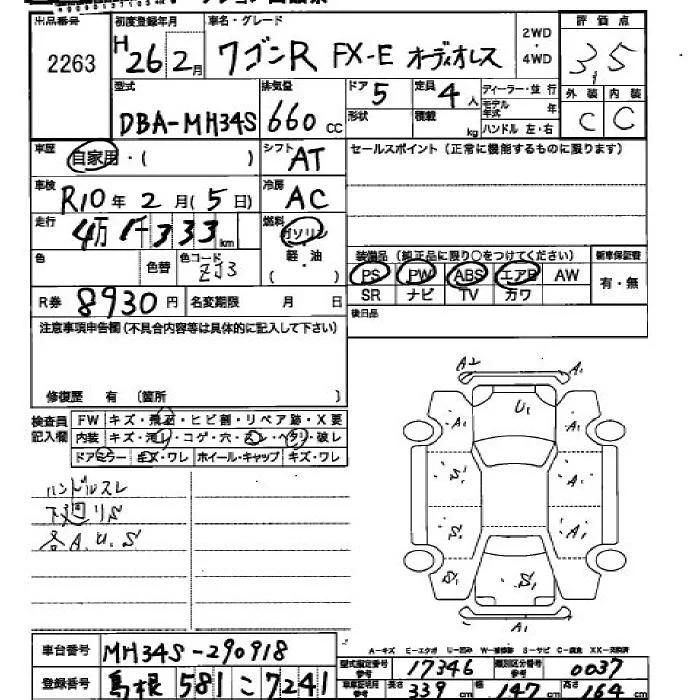 出品番号 初度登録年月 車名・グレード 2WD・4WD 評価点
2263 H26 2月 ワゴンR FX-E オーディオレス 3,5
型式 排気量 ドア 5 定員 4人 ディーラー・並行 外装 内装
DBA-MH34S 660cc 形状 積載 kg モデル年式 年 C C
ハンドル 左・右
車歴 自家用・( ) シフト AT セールスポイント(正常に機能するものに限ります)
車検 R10年2月(5日) 冷房 AC
走行 4万1千333km 燃料 ガソリン
色 色替 色コード ZJ3 軽・油 ( )
装備品(純正品に限り○をつけてください) 新車保証書
PS PW ABS エアB AW 有・無
SR ナビ TV カワ
R券 8930円 名変期限 月 日
後日品
注意事項申告欄(不具合内容等は具体的に記入して下さい)
修復歴 有 (箇所 )
検査員記入欄 FW キズ・飛石・ヒビ割・リペア跡・X要
内装 キズ・汚れ・コゲ・穴・スレ・ヘタリ・破レ
ドアミラー キズ・ワレ ホイール・キャップ キズ・ワレ
ハンドルスレ
下廻リS
各A.U.S
A2 A1
A1 U1 A1
S1 A1
S1 A1
S1 S1 A1
A1
A-キズ E-エクボ U-凹み W-補修跡 S-サビ C-腐食 XX-交換済
車台番号 MH34S-290918
型式指定番号 参考 17346 類別区分番号 参考 0037
登録番号 島根 581 こ 7241
車庫証明用 参考 長さ 339cm 幅 147cm 高さ 164cm